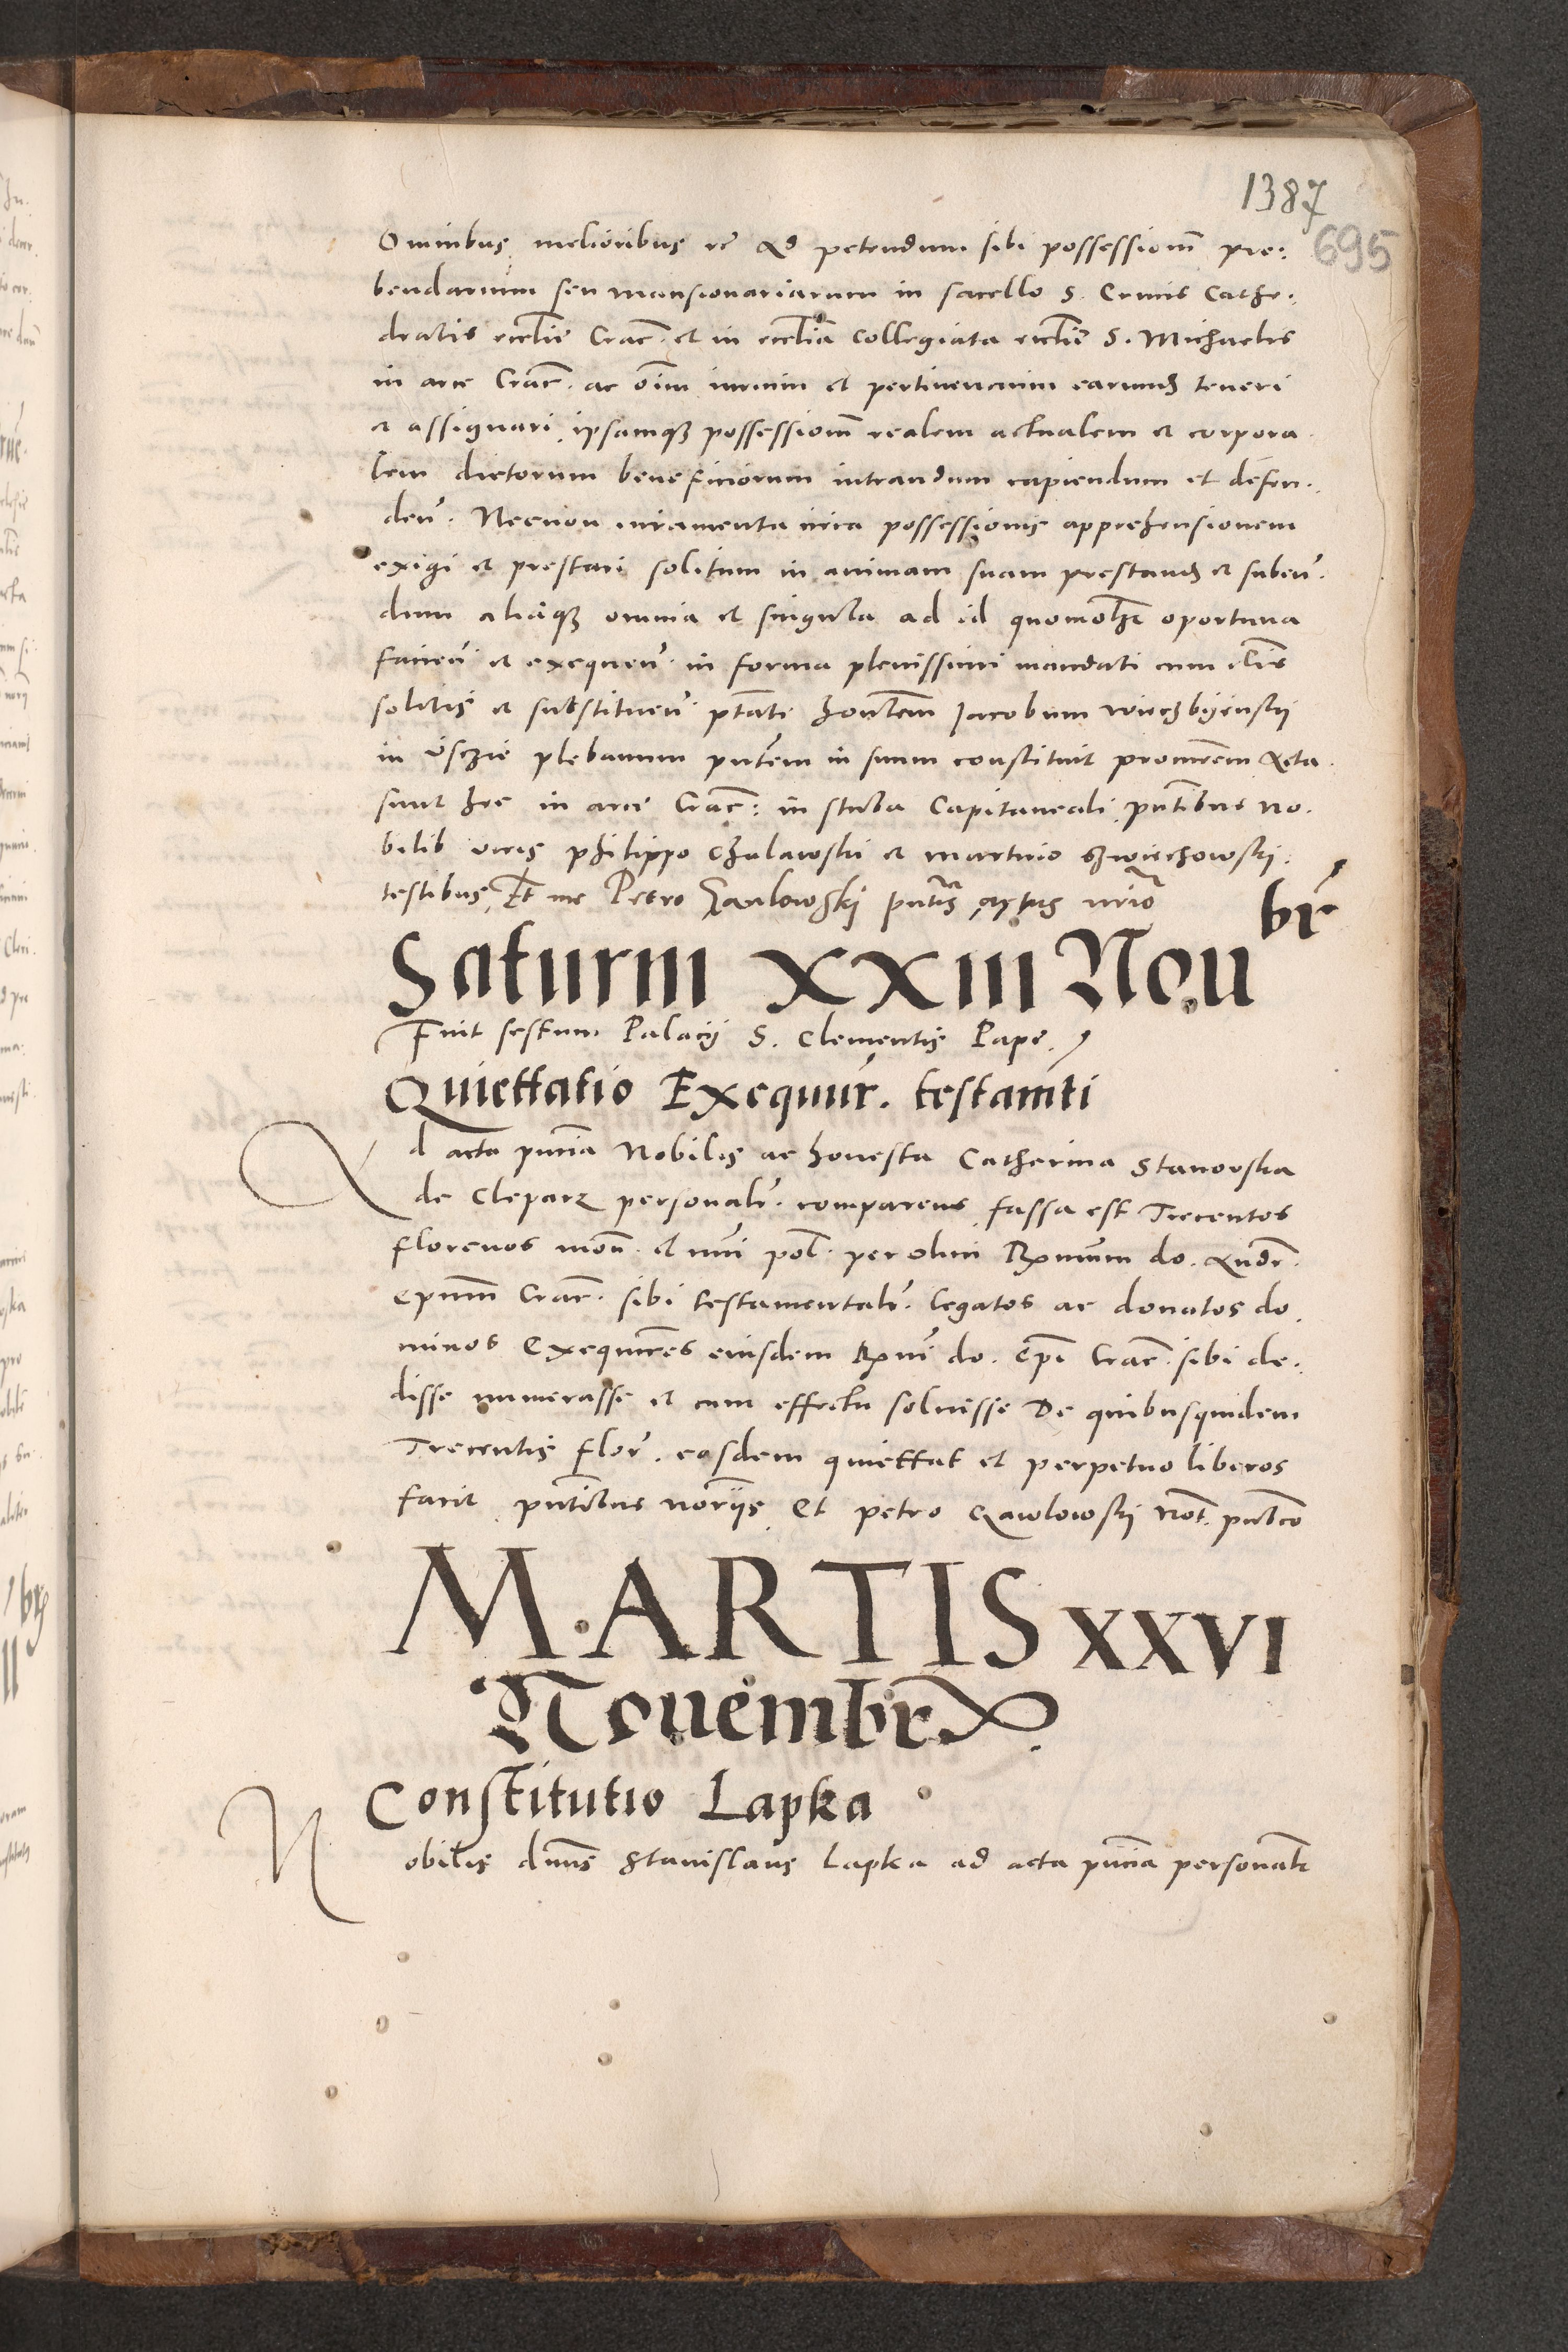 1387
695
Omnibus melioribus etc̄ Ad petendum sibi possessionem̄ pre:
bendarum seu mansionariarum in sacello S. Crucis Cathe:
dralis eccl̄ie Crac̄. et in eccl̄ia Collegiata eccl̄ie S. Michaelis
in arce Crac̄. ac oīm iurium et pertinenciarum earumdꝫ teneri
et assignari, ipsamqꝫ possessionem̄ realem actualem et corpora
lem dictorum beneficiorum intrandum capiendum et defen:
den̄. Necnon iuramenta circa possessionis apprehensionem
exigi et prestari solitum in animam suam prestandꝫ et subeun̄.
dum aliaqꝫ omnia et singula ad id quomol̄t oportuna
facien̄ et exequen̄. in forma plenissimi mandati cum cl̄is
solitis et substituen̄. ptāte hon̄tem Jacobum
in Usczie plebanum pn̄tem in suum constituit procur̄em Acta
sunt hec in arce Crac̄: in stuba Capitaneali, pn̄tibus no.
bilib viris Philippo Chalawski et Martino
testibus, Et me Petro Zawlowskij pn̄tis actus
Saturni XXIII Nou br̄
Fuit festum Palacij S. Clementis Pape.
Quiettatio Exequūr. testamn̄ti
Ad acta pn̄cia Nobilis ac honesta Catherina Stanowska
de Cleparz personalr̄. comparens, fassa est Trecentos
florenos mon̄. et nū̄i pol̄. per olim Rx̄mum do. Andr̄.
epum̄ Crac̄. sibi testamentalr̄. legatos ac donatos do.
minos Exequut̄res eiusdem Rx̄mi do. ep̄i Crac̄. sibi de.
disse numerasse et cum effectu soluisse De quibusquidem
Trecentis flor̄. eosdem quiettat et perpetuo liberos
facit, pn̄tibus norijs, Et Petro Zawlowskij Not̄. publ̄co
MARTIS XXVI
Nouembr̄
Constitutio Lapka
Nobilis dn̄us Stanislaus Lapka ad acta pn̄cia personalr̄